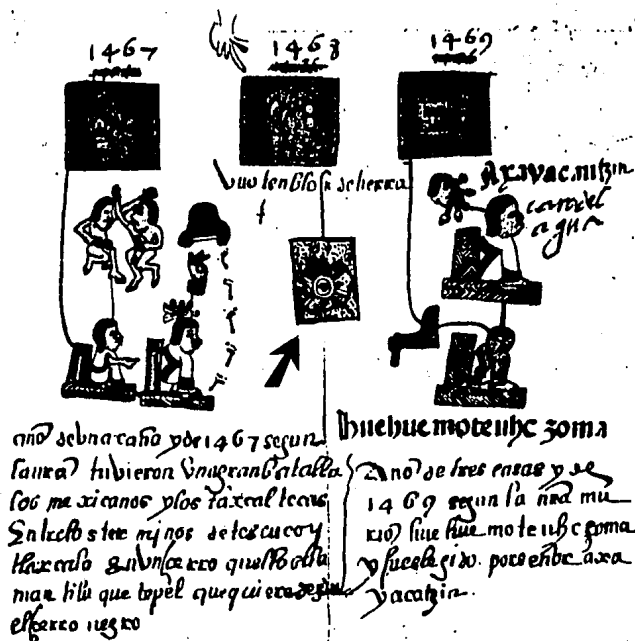 1467
1468
1469
huo tenblor de tierra
Axayacaitzin
cara del
agua
año de una caña y de 1467 segun
tuvieron una gran batalla
los mexicanos y los taxcaltecas
Entre los terminos de tescuco y
tlaxcala en un çerro
que quiere dezir
el serro negro
huehuemoteuhczoma
Año de tres casas y de
1469 segun la nra mu
rio huehuemoteuhcçoma
y fue elegido por señor axa
yacatzin